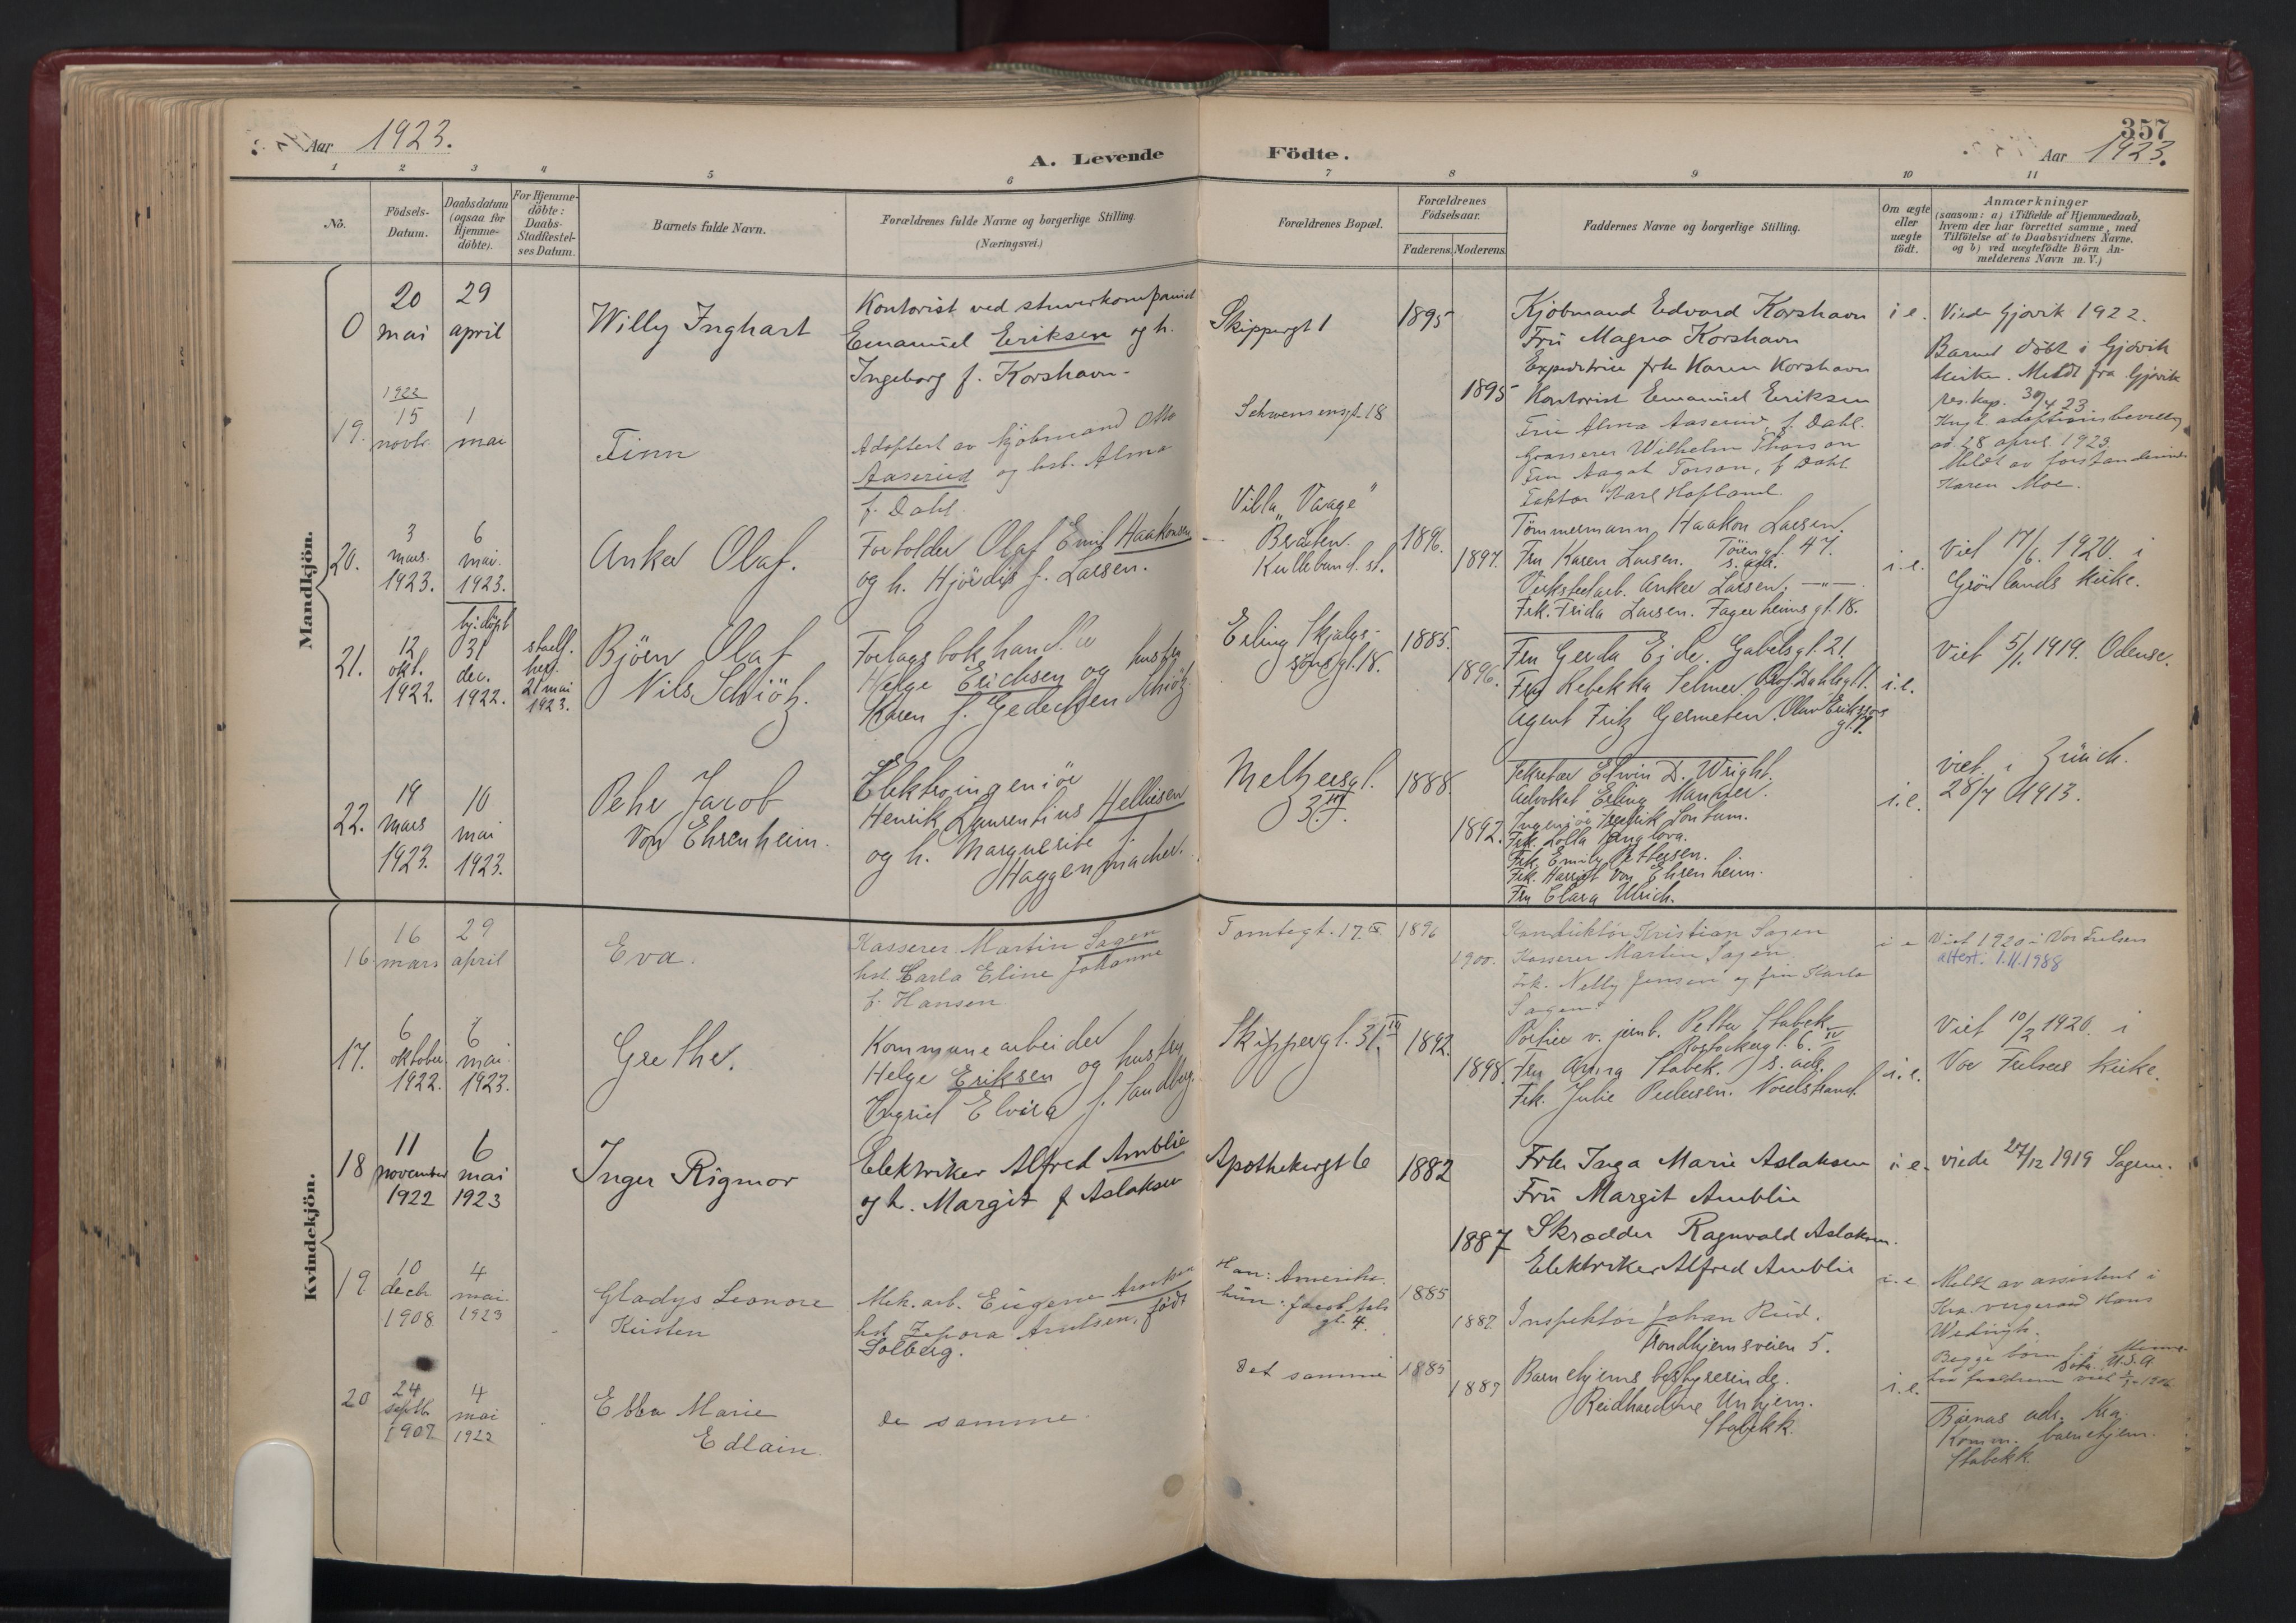 Aar 1923.
A. Levende Födte.
357
Aar 1923.
1 2 3 4 5 6 7 8 9 10 11
No.
Födsels-
Datum.
Daabsdatum
(ogsaa for
Hjemme-
döbte).
For Hjemme-
döbte:
Daabs-
Stadfæstel-
ses Datum.
Barnets fulde Navn.
Forældrenes fulde Navne og borgerlige Stilling.
(Næringsvei.)
Forældrenes Bopæl.
Forældrenes
Födselsaar.
Faderens. Moderens.
Faddernes Navne og borgerlige Stilling.
Om ægte
eller
uægte
födt.
Anmærkninger
(saasom: a) i Tilfælde af Hjemmedaab,
hvem der har forrettet samme, med
Tilföielse af to Daabsvidners Navne,
og b) ved uægtefödte Börn An-
melderens Navn m. V.)
Mandkjön.
0
20
mai
29
april
Willy Inghart
Kontorist ved
Emanuel Eriksen og h.
Ingeborg f. Korshavn.
Skippergt 1
1895
1895
Kjöbmand Edvard Korshavn
Fru Magna Korshavn
Expeditrice frk Karen Korshavn
Kontorist Emanuel Eriksen
i e.
Viede Gjövik 1922.
Barnet döbt i Gjövik
kirke. Meldt fra Gjövik
res. kap. 30/4 23
19.
1922
15
novbr.
1
mai
Finn
Adoptert av kjöbmand Otto
Aaserud og hst. Alma
f. Dahl.
Schwensensgt. 18
Fru Alma Aaserud, f. Dahl.
Grosserer Wilhelm Thorson
Fru Aagot Torson, f. Dahl
Faktor Karl Hofland.
Kngl. adoptionsbevilling
av 28 april 1923.
Meldt av forstanderinde
Karen Moe.
20.
3
mars.
1923.
6
mai.
1923.
Anker Olaf.
Forholder Olaf Emil Haakonsen
og h. Hjördis f. Larsen.
Villa "Varage"
Bråten.
Kullebund. st.
1896.
1897.
Tömmermann Haakon Larsen.
Töiengt. 47.
Fru Karen Larsen. s. adr.
Verkstedarb. Anker Larsen, —"—
Frk. Frida Larsen. Fagerheimsgt. 18.
i.e.
Viet 17/6 1920. i
Grönlands kirke.
21.
12
okt.
1922.
hj. döpt
31
dec.
1922.
stadf.
21 mai
1923.
Björn Olaf
Nils Schiötz.
Forlagsbokhandler
Helge Erichsen og hustru
Karen f. Gedechsen Schiötz
Erling Skjalgs-
sönsgt. 18.
1885.
1896.
Fru Gerda Ejde. Gabelsgt. 21.
Fru Rebekka Selmer. Olaf
Agent Fritz
i.e.
Viet 5/1 1919. Odense.
22.
19
mars
1923.
10
mai
1923.
Pehr Jacob
Von Ehrenheim.
Elektroingeniör
Henrik Laurentius Helliesen
og h. Marguerite f.
Haggenmacher.
Meltzersgt.
3 III
1888.
1892.
Sekretær Edwin D. Wright.
Advokat Erling
Ingeniör Fredrik Sontum.
Frk. Lolla
Frk. Emily Pettersen.
Frk. Harriet Von Ehrenheim.
Fru Clara Ulrich.
i.e.
viet i Zürich.
28/7 1913.
Kvindekjön.
16
16
mars
29
april
Eva.
Kasserer Martin Sagen
hst. Carla Eline Johanne
f. Hansen.
Tomtegt. 17.
1896
1900.
Konduktör Kristian Sagen
Kasserer Martin Sagen
Frk. Nelly Jensen og fru Karla
Sagen
i e
Viet 1920 i Vor Frelsers
attest. 1.11.1988
17.
6
oktober
1922.
6
mai.
1923.
Grethe.
Kommunearbeider
Helge Eriksen og hustru
Ingrid Elvira f. Sandberg.
Skippergt. 31. III
1892.
1898.
Portier v. jernb. Petter Stabek
Rostockergt. 6. IV
Fru Anna Stabek. s. adr.
Frk. Julie Pedersen. Nordstrand.
i.e.
Viet 10/2 1920. i
Vor Frelsers kirke.
18
11
november
1922
6
mai
1923
Inger Rigmor
Elektriker Alfred Amblie
og h. Margit f Aslaksen
Apothekergt 6
1882
1887
Frk Inga Marie Aslaksen
Fru Margit Amblie
Skrædder Ragnvald Aslaksen.
Elektriker Alfred Amblie
i e.
viede 27/12 1919 Sagene.
19
10
decb.
1908
4
mai
1923
Gladys Leonore
Kirsten
Mek. arb. Eugene
hst. Zepora Arntsen, födt
Solberg.
Han: Amerika.
hun: Jacob Aals
gt. 4.
1885
1887
Inspektör Johan Rud.
Trondhjemsveien 5.
i. e
Meldt av assistent i
Kra. vergeraad Hans
Wedingh.
20
24
septb.
1907
4
mai
1923
Ebba Marie
Edlain.
de samme.
Det samme
1885
1887
Barnehjems bestyrerinde.
Reidhardine Unhjem.
Stabekk.
i.e.
Begge born i
U.S.A
Barnas adr. Kra.
Komm. barnehjem.
Stabekk